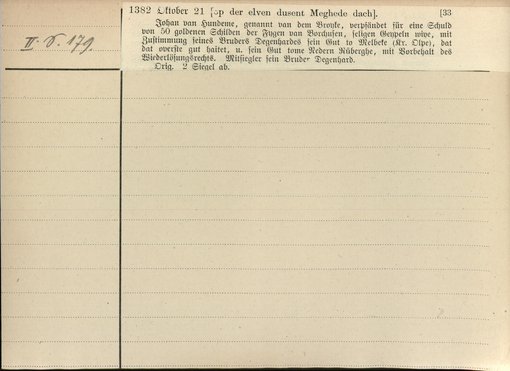 1382 Oktober 21 [op der elven dusent Meghede dach]. [33
II. 6. 179.
Johan van Hundeme, genannt van dem Broyke, verpfändet für eine Schuld
von 50 goldenen Schilden der Fygen van Vorchusen, seligen Geypeln wive, mit
Zustimmung seines Bruders Degenhardes sein Gut to Melbeke (Kr. Olpe), dat
dat overste gut haitet, u. sein Gut tome Nedern Rüberghe, mit Vorbehalt des
Wiederlösungsrechts. Mitsiegler sein Bruder Degenhard.
Orig. 2 Siegel ab.